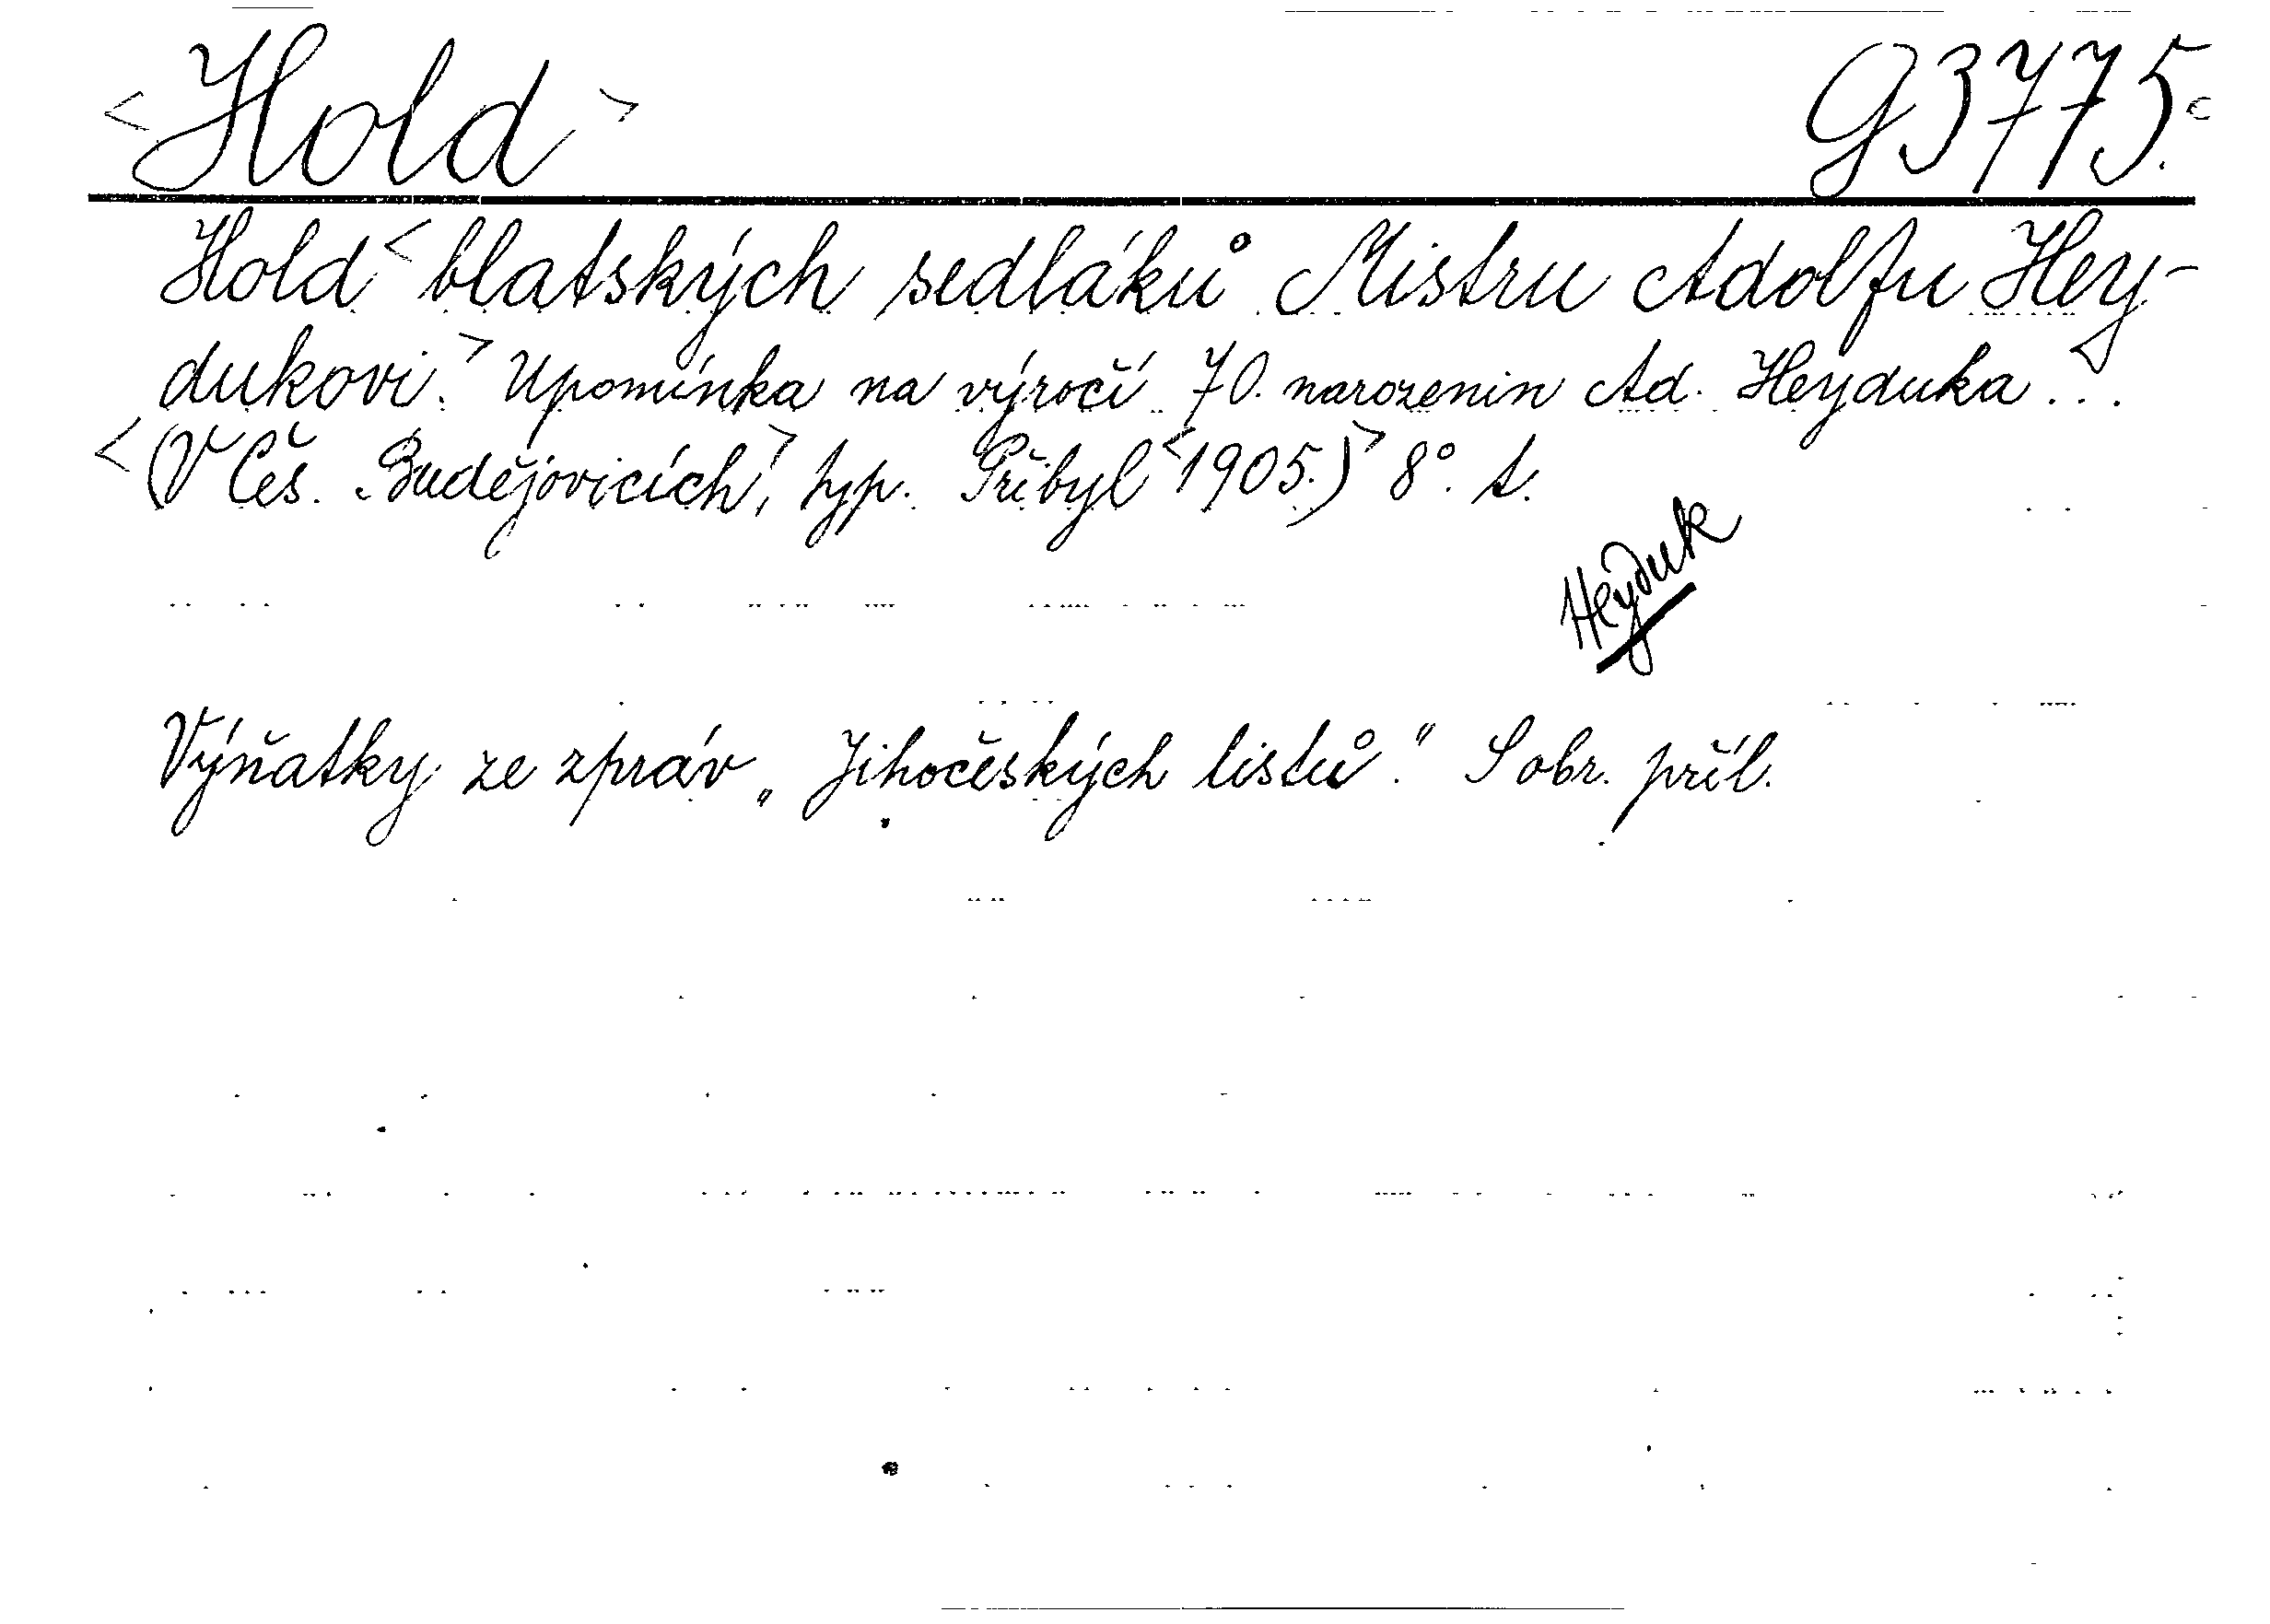 <Hold> G 3775.
Hold <blatských sedláků Mistru Adolfu Hey-
dukovi.> Upomínka na výročí 70. narozenin Ad. Heyduka ...
<(V Čes. Budějovicích,> typ. Přibyl <1905.)> 8°. t.
Heyduk
Výňatky ze zpráv „Jihočeských listů." S obr. příl.